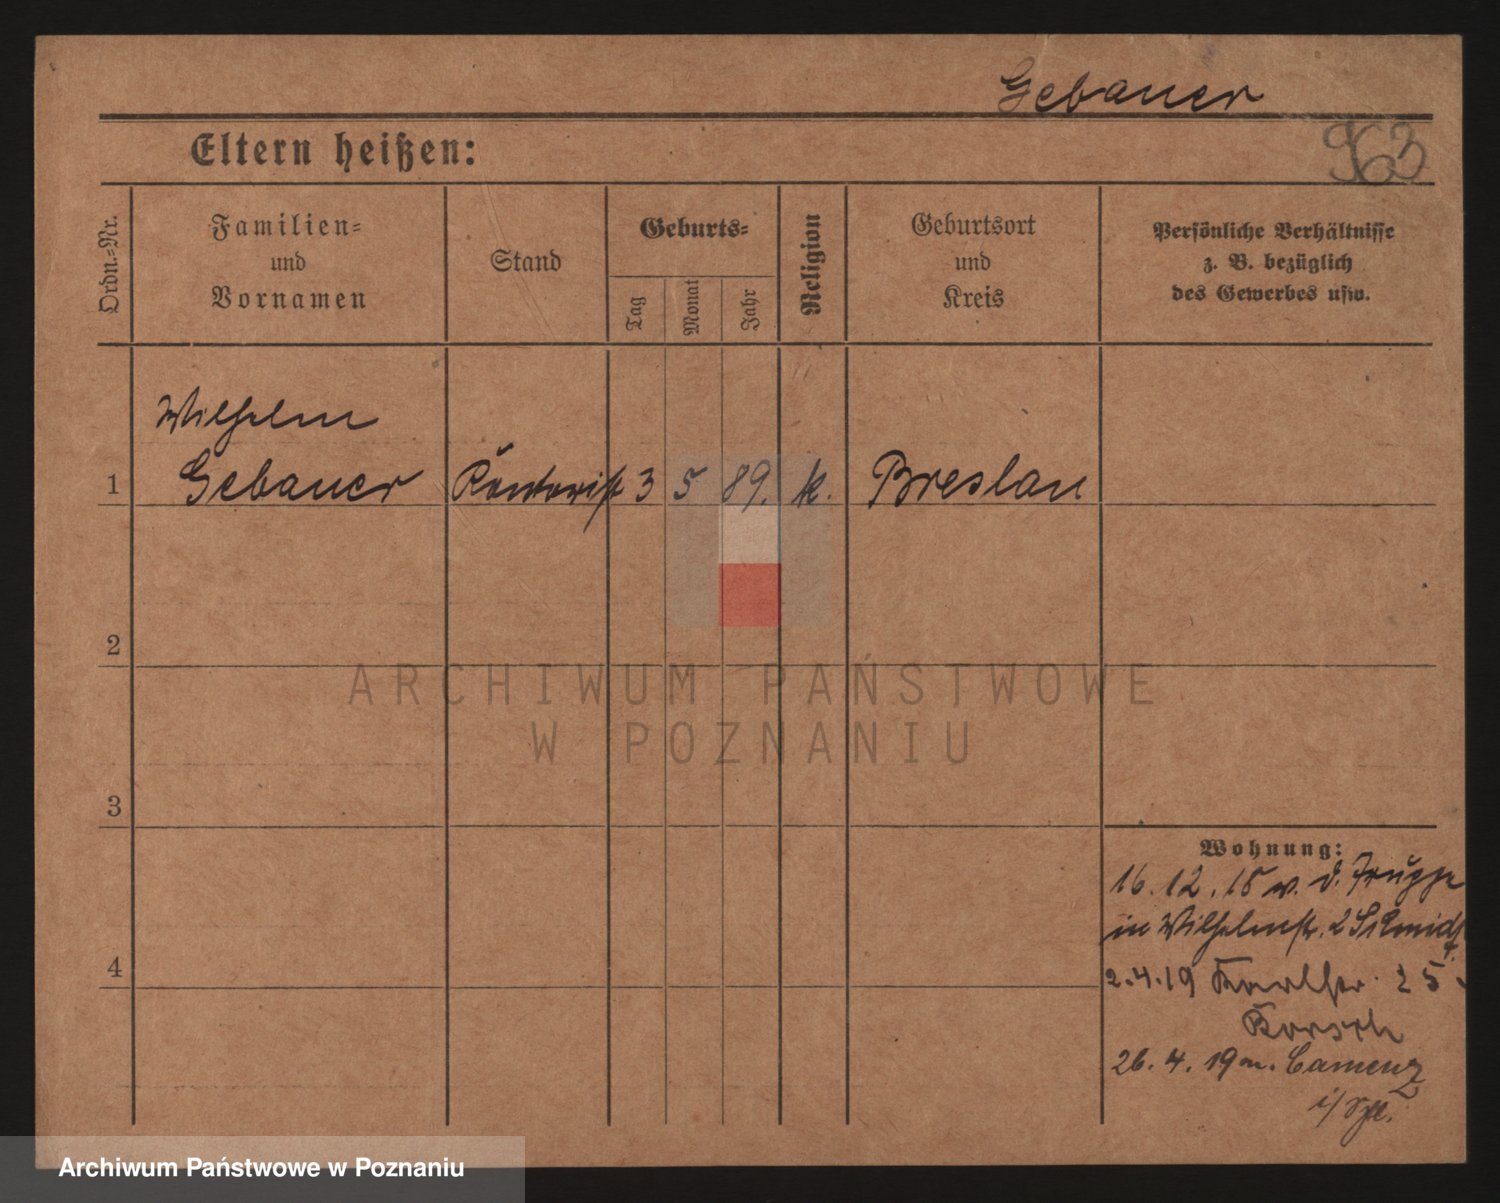 Gebauer
Eltern heißen:
963
Ordn.-Nr.
Familien-
und
Vornamen
Stand
Geburts-
Tag
Monat
Jahr
Religion
Geburtsort
und
Kreis
Persönliche Verhältnisse
z. B. bezüglich
des Gewerbes usw.
Wilhelm
1 Gebauer Kontorist 3 5 89. k. Breslau
2
3
4
ARCHIWUM PAŃSTWOWE
W POZNANIU
Wohnung:
16.12.18 v. d. Truppe
in Wilhelmstr. 2 Schmidt
2.4.19 Karlstr. 25
26.4.19 n. Camenz
i/Schl.
Archiwum Państwowe w Poznaniu